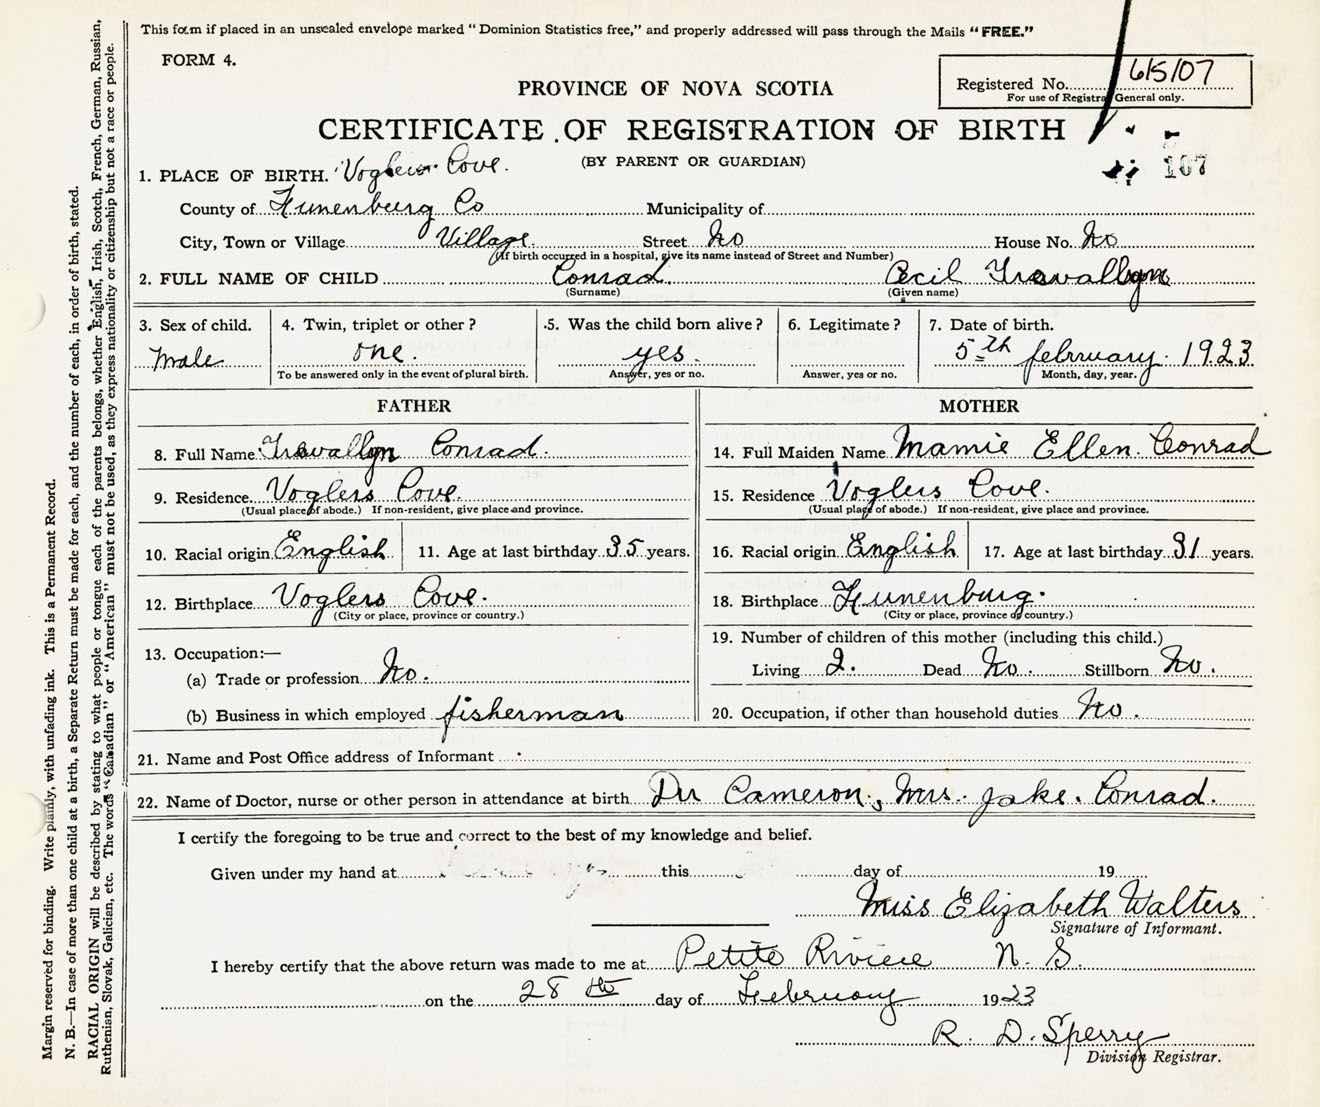 This form if placed in an unsealed envelope marked "Dominion Statistics free," and properly addressed will pass through the Mails "FREE."
FORM 4.
Registered No. 615107
For use of Registrar General only.
PROVINCE OF NOVA SCOTIA
CERTIFICATE OF REGISTRATION OF BIRTH
(BY PARENT OR GUARDIAN)
107
1. PLACE OF BIRTH. Voglers Cove.
County of Lunenburg Co Municipality of
City, Town or Village Village. Street No House No. No
(If birth occurred in a hospital, give its name instead of Street and Number)
2. FULL NAME OF CHILD Conrad. Cecil Travallyn
(Surname) (Given name)
3. Sex of child. 4. Twin, triplet or other? 5. Was the child born alive? 6. Legitimate? 7. Date of birth.
Male one. yes. 5th february. 1923.
To be answered only in the event of plural birth. Answer, yes or no. Answer, yes or no. Month, day, year.
FATHER MOTHER
8. Full Name Travallyn Conrad. 14. Full Maiden Name Mamie Ellen. Conrad
9. Residence Voglers Cove. 15. Residence Voglers Cove.
(Usual place of abode.) If non-resident, give place and province. (Usual place of abode.) If non-resident, give place and province.
10. Racial origin English 11. Age at last birthday 35 years. 16. Racial origin English 17. Age at last birthday 31 years.
12. Birthplace Voglers Cove. 18. Birthplace Lunenburg.
(City or place, province or country.) (City or place, province or country.)
13. Occupation:— 19. Number of children of this mother (including this child.)
(a) Trade or profession No. Living 2. Dead No. Stillborn No.
(b) Business in which employed fisherman 20. Occupation, if other than household duties No.
21. Name and Post Office address of Informant
22. Name of Doctor, nurse or other person in attendance at birth Dr Cameron, Mrs. Jake. Conrad.
I certify the foregoing to be true and correct to the best of my knowledge and belief.
Given under my hand at this day of 19
Miss Elizabeth Walters
Signature of Informant.
I hereby certify that the above return was made to me at Petite Riviere N. S.
on the 28 th day of February 1923
R. D. Sperry
Division Registrar.
Margin reserved for binding. Write plainly, with unfading ink. This is a Permanent Record.
N. B.—In case of more than one child at a birth, a Separate Return must be made for each, and the number of each, in order of birth, stated.
RACIAL ORIGIN will be described by stating to what people or tongue each of the parents belongs, whether English, Irish, Scotch, French, German, Russian,
Ruthenian, Slovak, Galician, etc. The words "Canadian" or "American" must not be used, as they express nationality or citizenship but not a race or people.